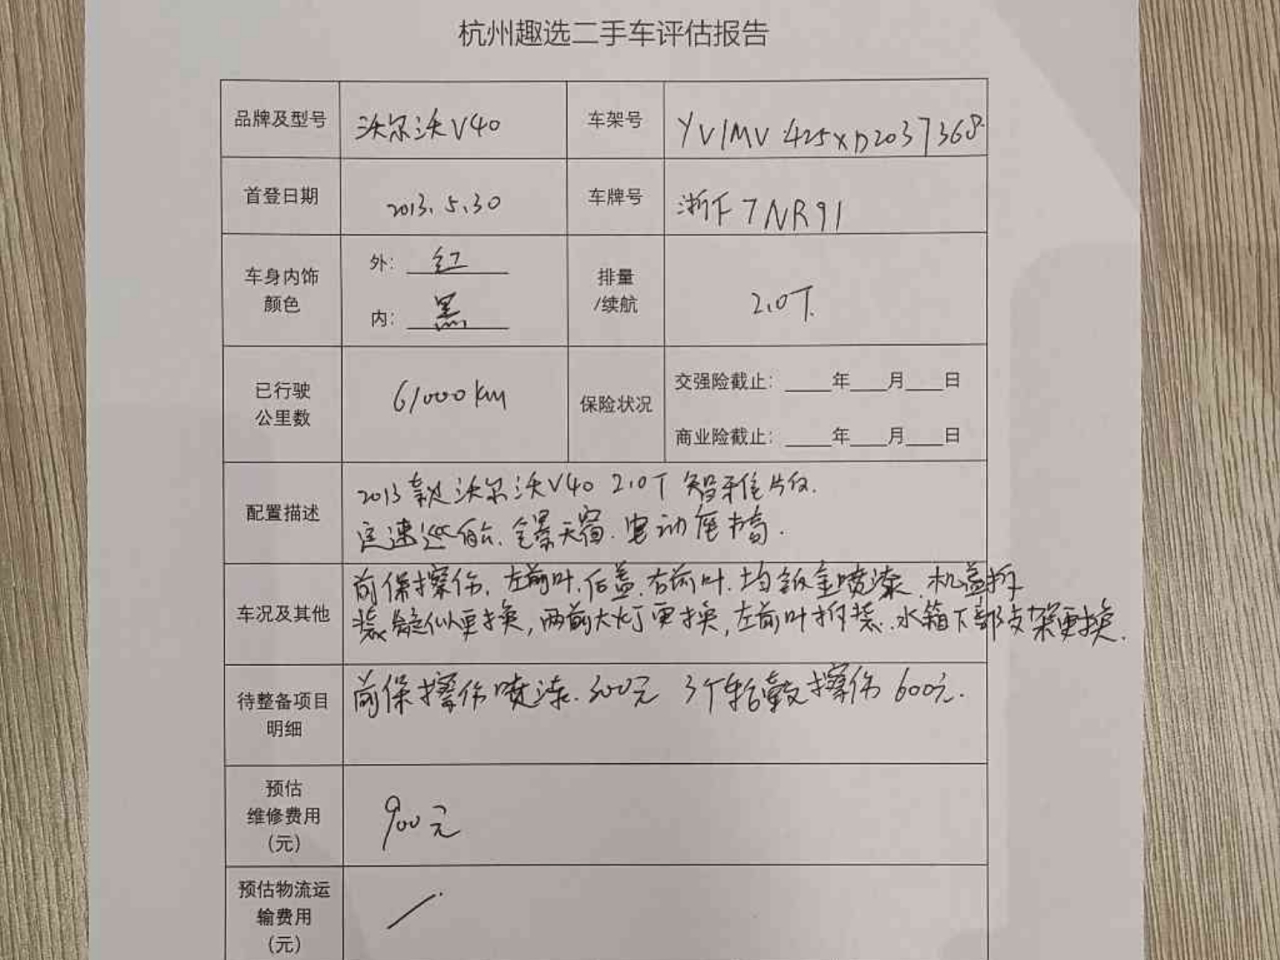 杭州趣选二手车评估报告
品牌及型号 沃尔沃V40 车架号 YV1MV425XD2037368
首登日期 2013.5.30 车牌号 浙F7NR91
车身内饰颜色 外: 红 内: 黑 排量/续航 2.0T
已行驶公里数 61000km 保险状况 交强险截止: ____年___月___日
商业险截止: ____年___月___日
配置描述 2013款沃尔沃V40 2.0T 智雅版
定速巡航.全景天窗.电动座椅.
车况及其他 前保擦伤,左前叶,后盖,右前叶,均钣金喷漆,机盖拆
装疑似更换,两前大灯更换,左前叶拆装.水箱下部支架更换.
待整备项目明细 前保擦伤喷漆.300元 3个轮毂擦伤 600元.
预估维修费用(元) 900元
预估物流运输费用(元) /